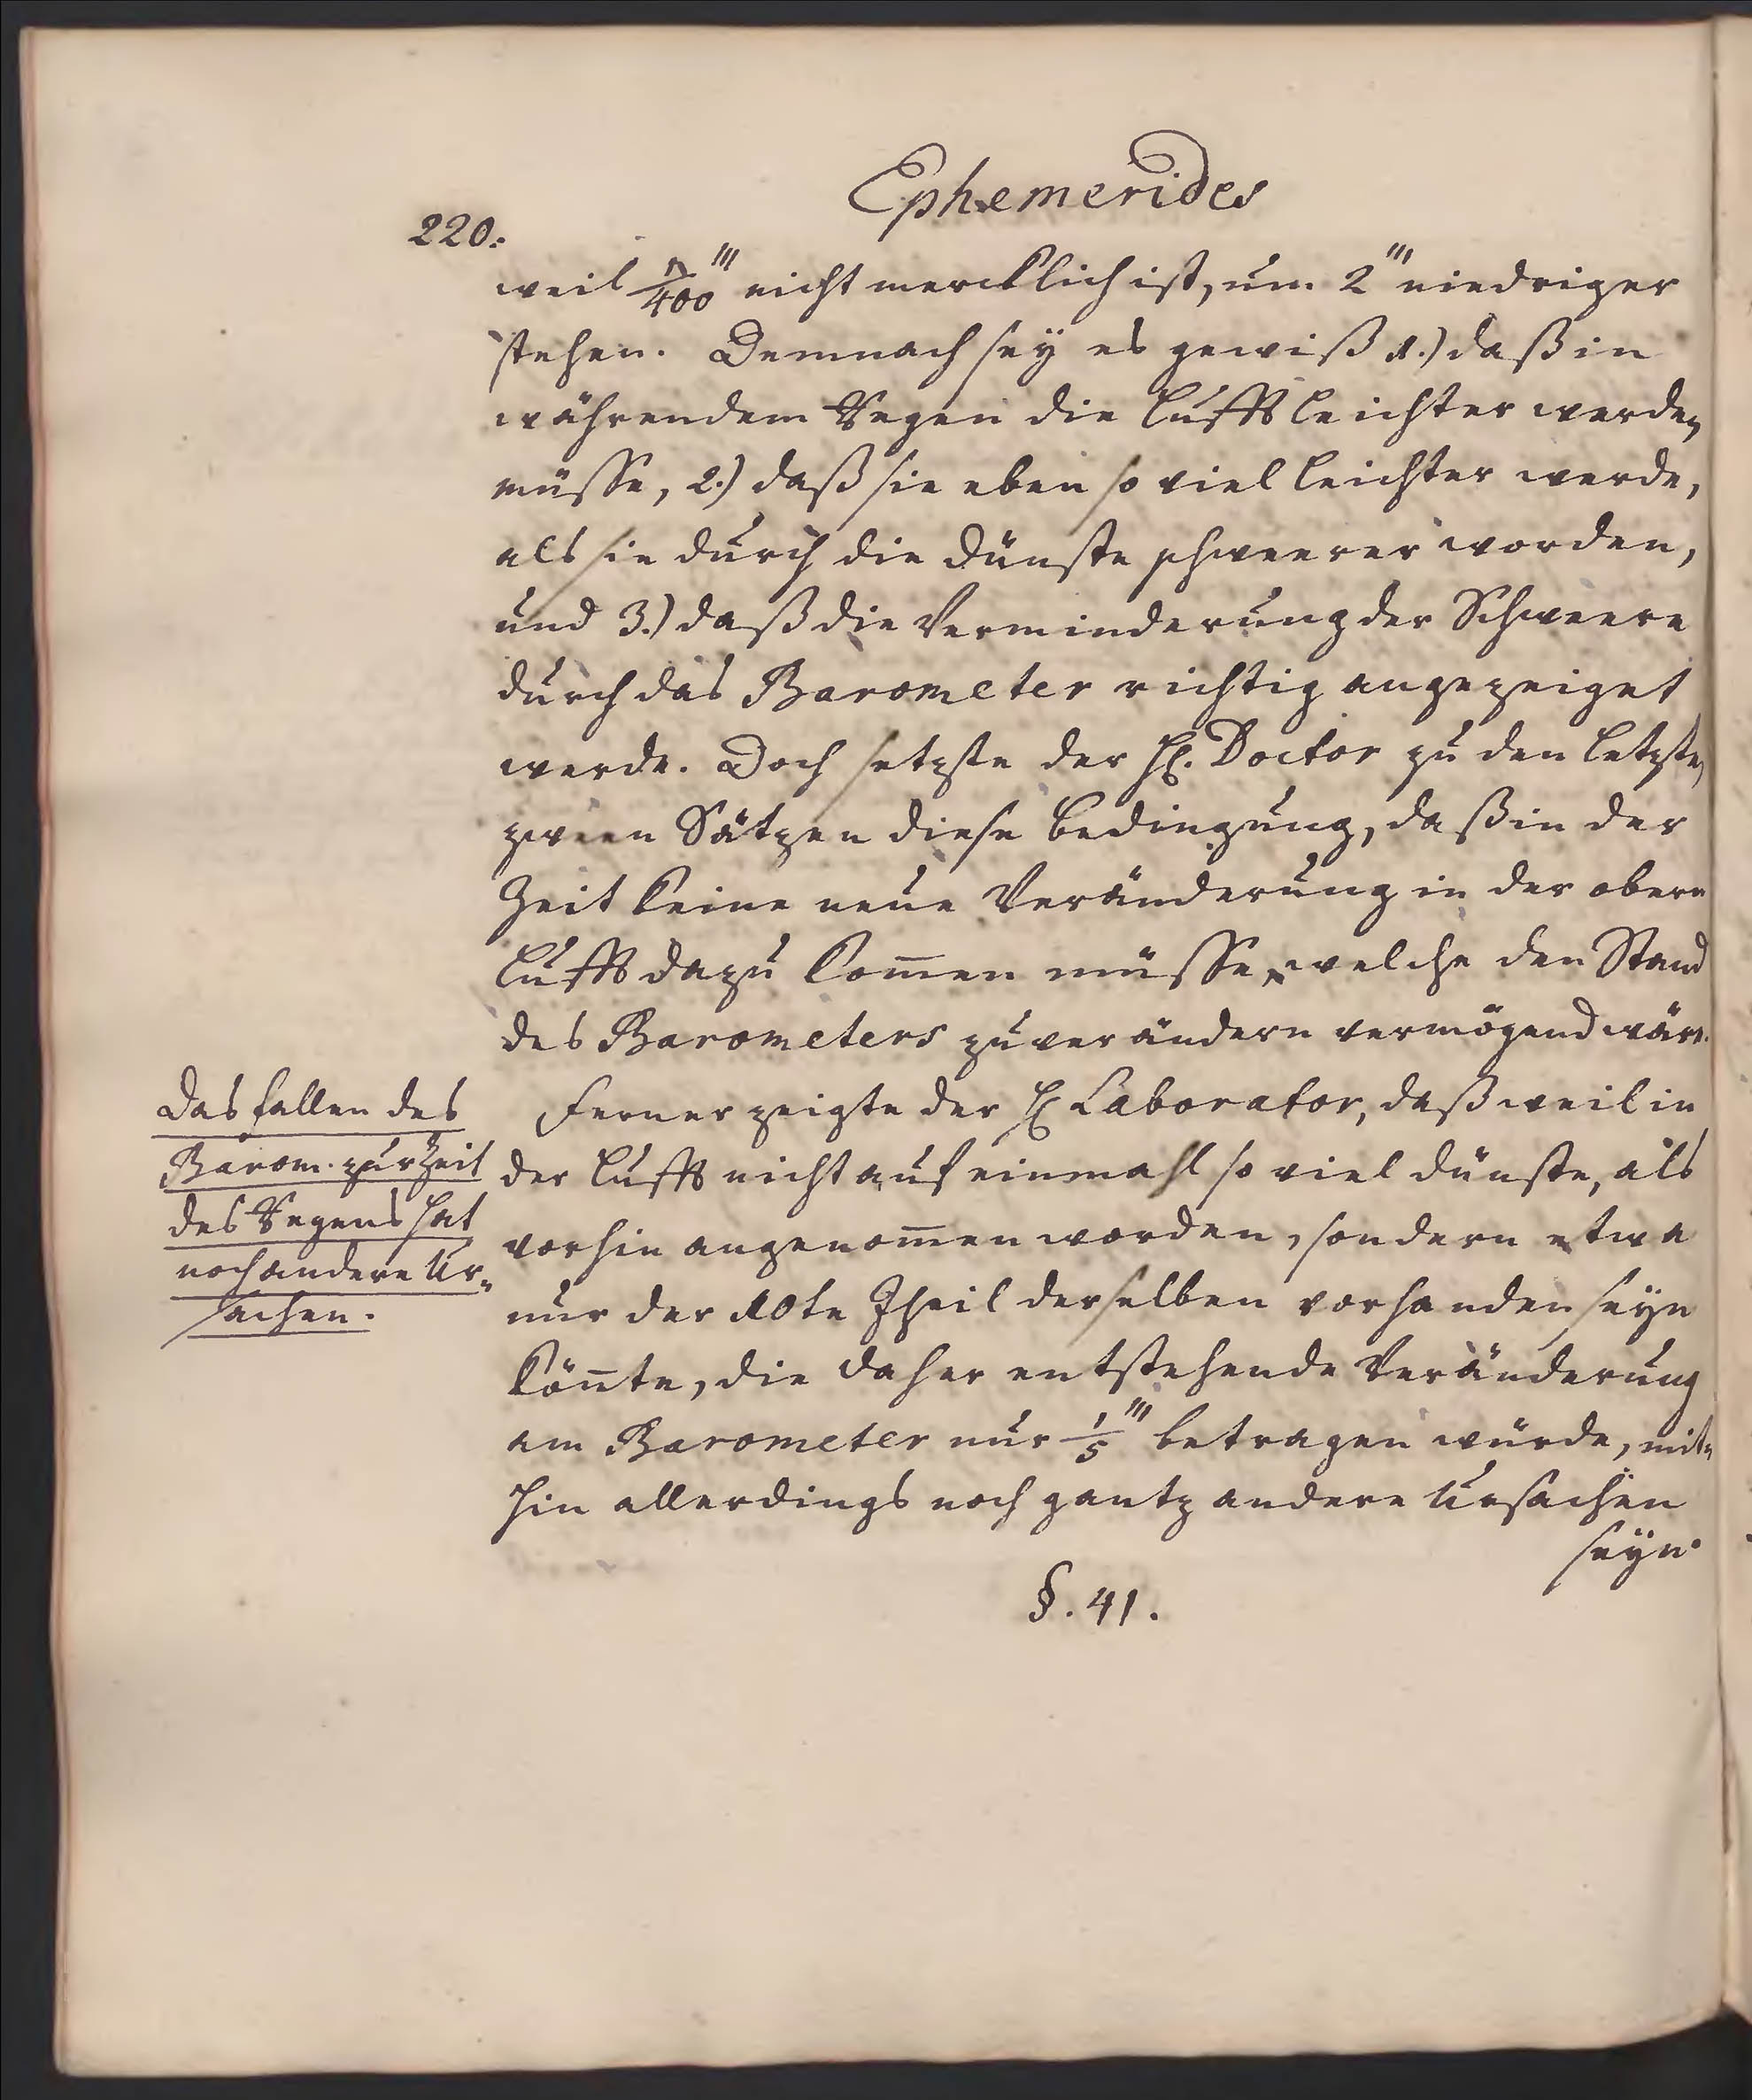 Ephemerides
220.
weil 1/400''' nicht mercklich ist, um 2''' niedriger
stehen. Demnach sey es gewiß 1.) daß in
währendem Regen die Lufft leichter werden
müsse, 2.) daß sie eben so viel leichter werde,
als sie durch die Dünste schweerer worden,
und 3.) daß die Verminderung der Schweere
durch das Barometer richtig angezeiget
werde. Doch setzte der H. Doctor zu den letzten
zween Sätzen diese Bedingung, daß in der
Zeit keine neue Veränderung in der obern
Lufft dazu kom̄en müsse, welche den Stand
des Barometers zu verändern vermögend wäre.
Das fallen des
Barom. zur Zeit
des Regens hat
noch andere Ur-
sachen.
Ferner zeigte der H. Laborator, daß weil in
der Lufft nicht auf einmahl so viel Dünste, als
vorhin angenom̄en worden, sondern etwa
nur der 10te Theil derselben vorhanden seyn
kön̄te, die daher entstehende Veränderung
am Barometer nur 1/5''' betragen würde, mit-
hin allerdings noch gantz andere Ursachen
seyn
§. 41.